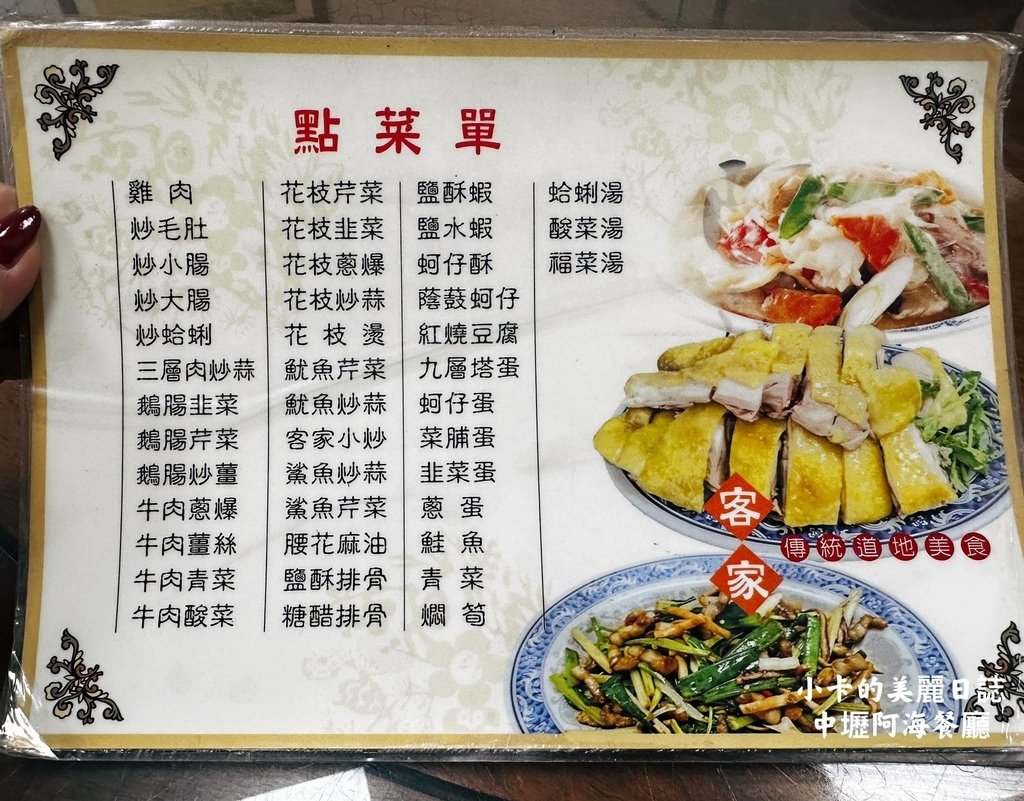 點菜單
雞肉
炒毛肚
炒小腸
炒大腸
炒蛤蜊
三層肉炒蒜
鵝腸韭菜
鵝腸芹菜
鵝腸炒薑
牛肉蔥爆
牛肉薑絲
牛肉青菜
牛肉酸菜
花枝芹菜
花枝韭菜
花枝蔥爆
花枝炒蒜
花枝燙
魷魚芹菜
魷魚炒蒜
客家小炒
鯊魚炒蒜
鯊魚芹菜
腰花麻油
鹽酥排骨
糖醋排骨
鹽酥蝦
鹽水蝦
蚵仔酥
蔭鼓蚵仔
紅燒豆腐
九層塔蛋
蚵仔蛋
菜脯蛋
韭菜蛋
蔥蛋
鮭魚
青菜
燜筍
蛤蜊湯
酸菜湯
福菜湯
客家
傳統道地美食
小卡的美麗日誌
中壢阿海餐廳